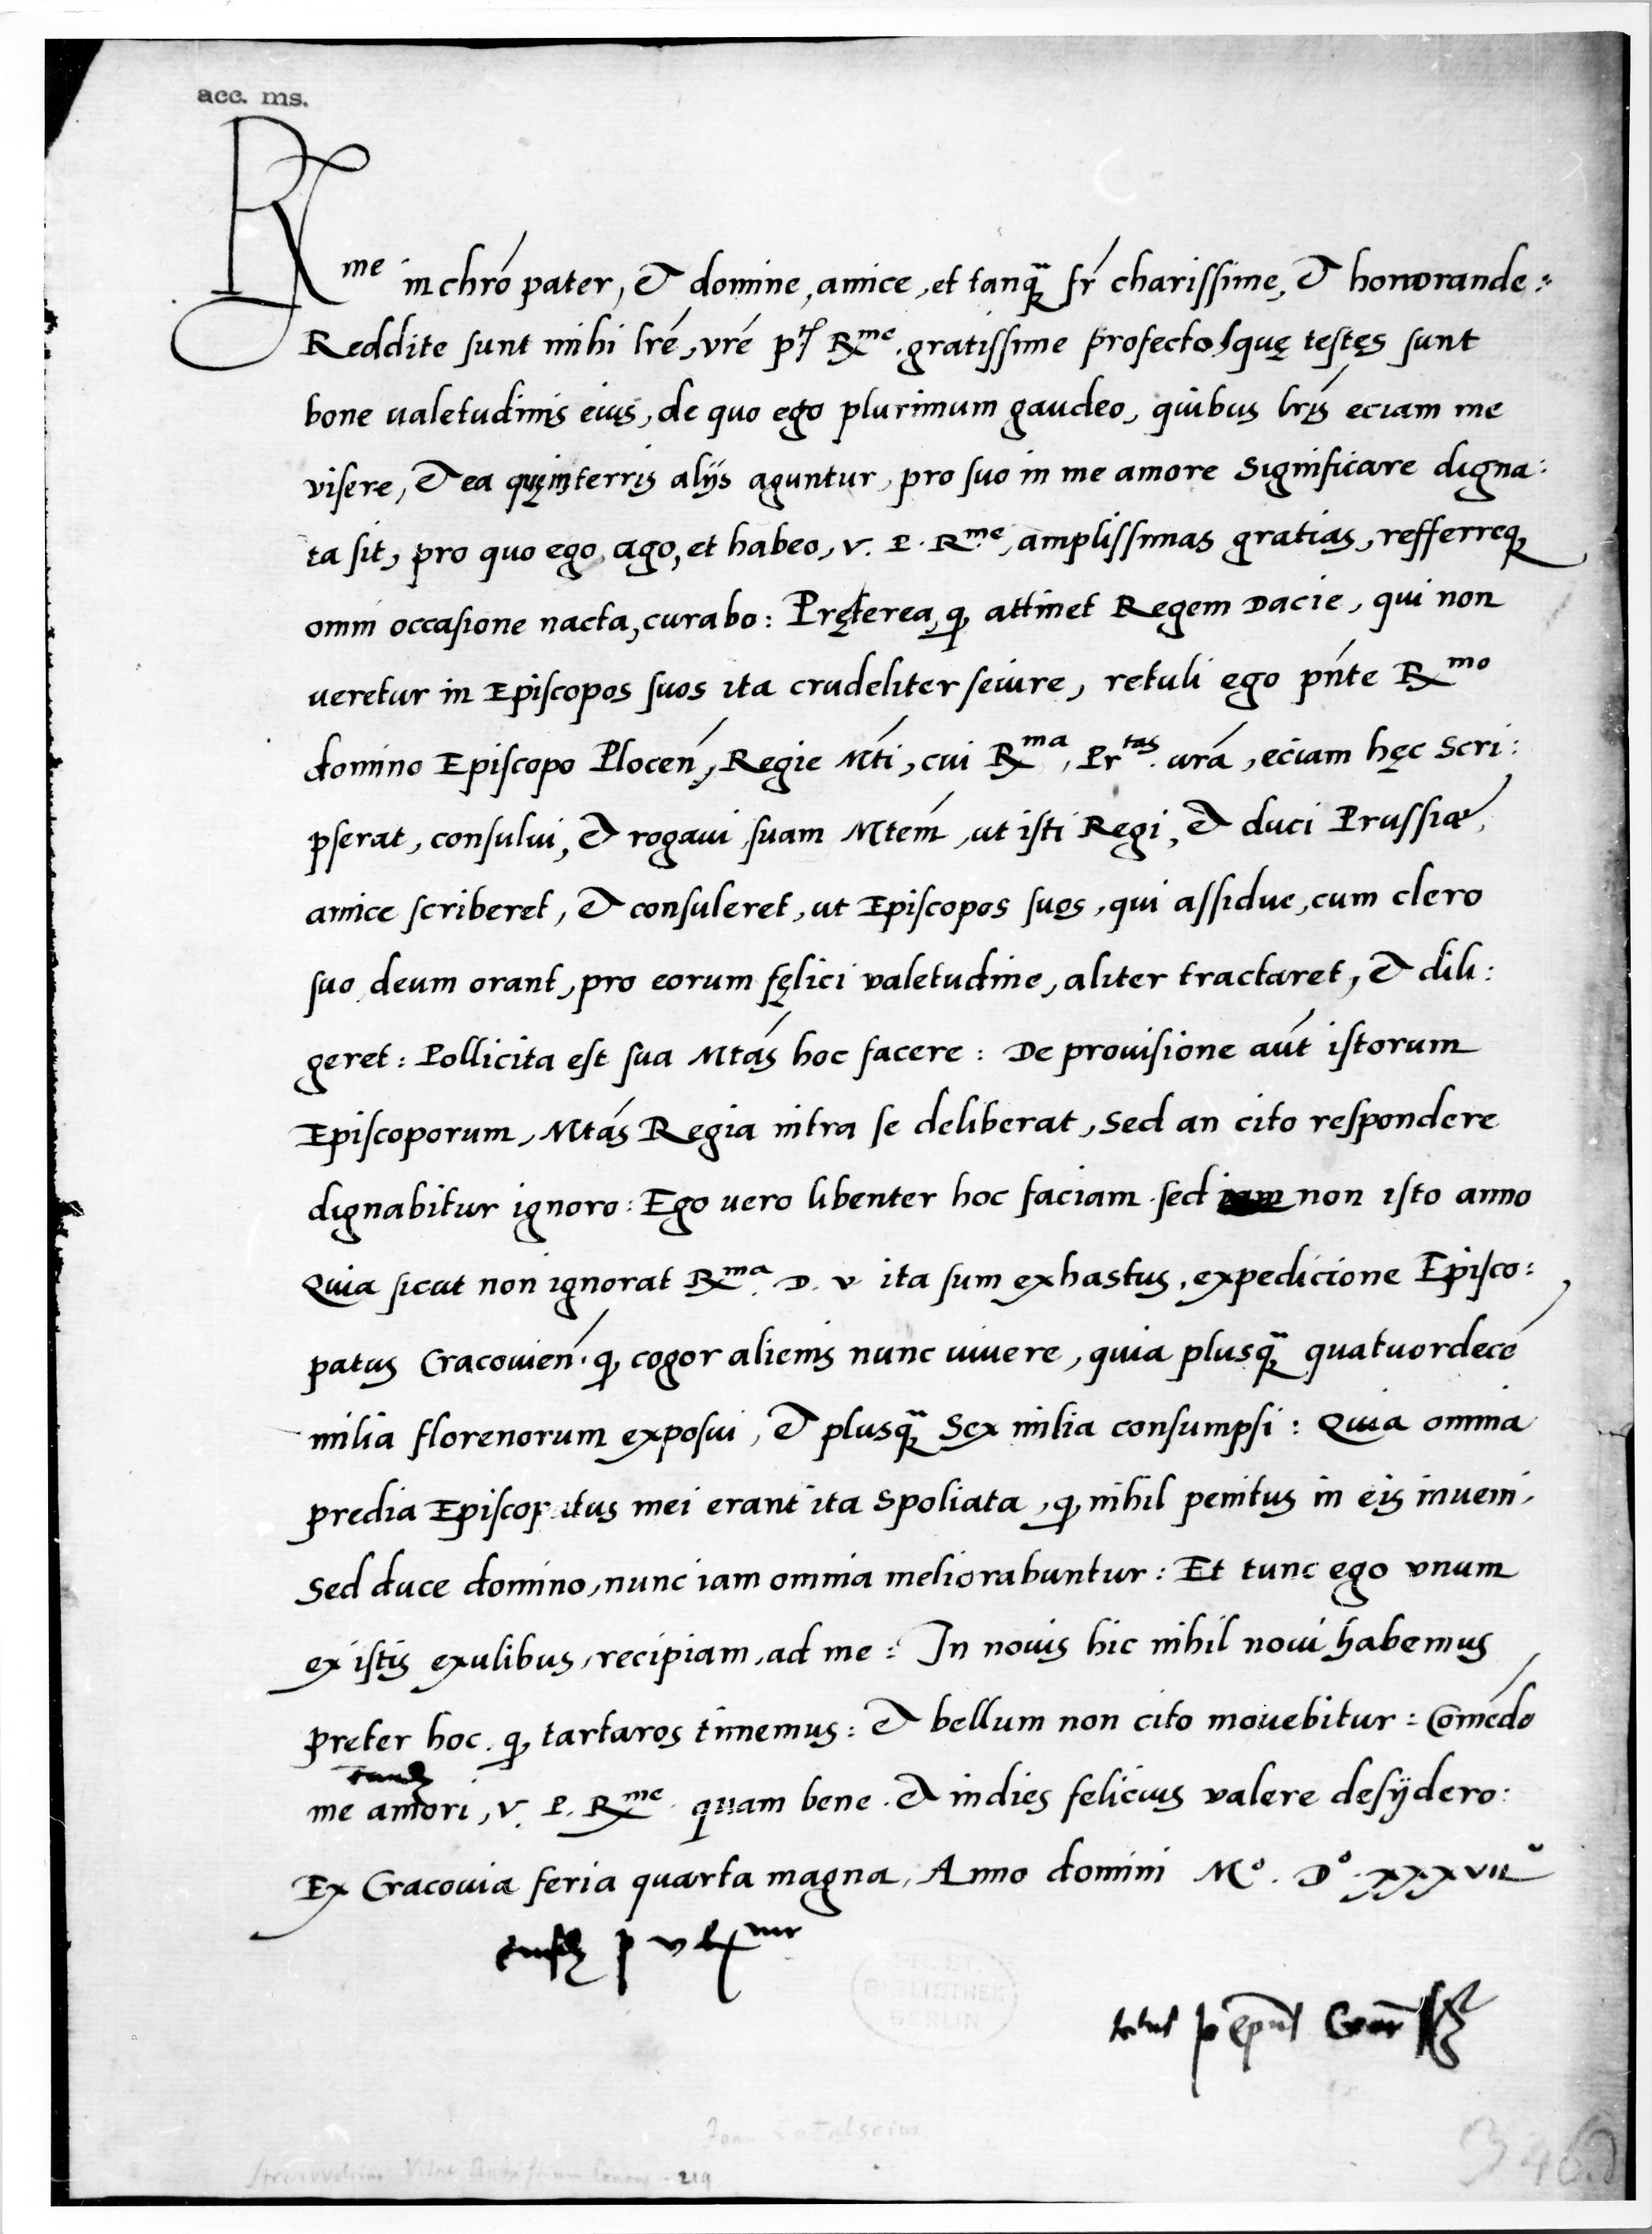 acc. ms.
Rme in chro pater, et domine, amice, et tanq̃ fr charissime, et honorande:
Reddite sunt mihi lre, vre ptis Rme. gratissime profecto, quę testęs sunt
bone ualetudinis eius, de quo ego plurimum gaudeo, quibus lris eciam me
visere, et ea quę in terris alijs aguntur, pro suo in me amore significare digna:
ta sit, pro quo ego, ago, et habeo, v. P. Rme, amplissimas gratias, refferreq
omni occasione nacta, curabo: Pręterea, q attinet Regem Dacie, qui non
ueretur in Episcopos suos ita crudeliter seuire, retuli ego pnte Rmo
domino Episcopo Plocen, Regie Mti, cui Rma, Prtas. ura, eciam hęc scri:
pserat, consului, et rogaui suam Mtem, ut isti Regi, et duci Prussiæ,
amice scriberet, et consuleret, ut Episcopos suos, qui assidue, cum clero
suo deum orant, pro eorum fęlici valetudine, aliter tractaret, et dili:
geret: Pollicita est sua Mtas hoc facere: De prouisione aut istorum
Episcoporum, Mtas Regia intra se deliberat, Sed an cito respondere
dignabitur ignoro: Ego uero libenter hoc faciam sed non isto anno
Quia sicut non ignorat Rma. D. v ita sum exhastus, expedicione Episco:
patus Cracouien. q cogor alienis nunc uiuere, quia plusq̃ quatuordece
milia florenorum exposui, et plusq̃ Sex milia consumpsi: Quia omnia
predia Episcopatus mei erant ita spoliata, q nihil penitus in eis inueni,
Sed duce domino, nunc iam omnia meliorabuntur: Et tunc ego vnum
ex istis exulibus, recipiam, ad me: In nouis hic nihil noui habemus
preter hoc. q tartaros timemus: et bellum non cito mouebitur: Comedo
me amori, v. P. Rme. quam bene. et indies felicius valere desydero:
Ex Cracouia feria quarta magna, Anno domini Mo. Do. xxxvii
p v Rme
BIBLIOTHEK
BERLIN
219